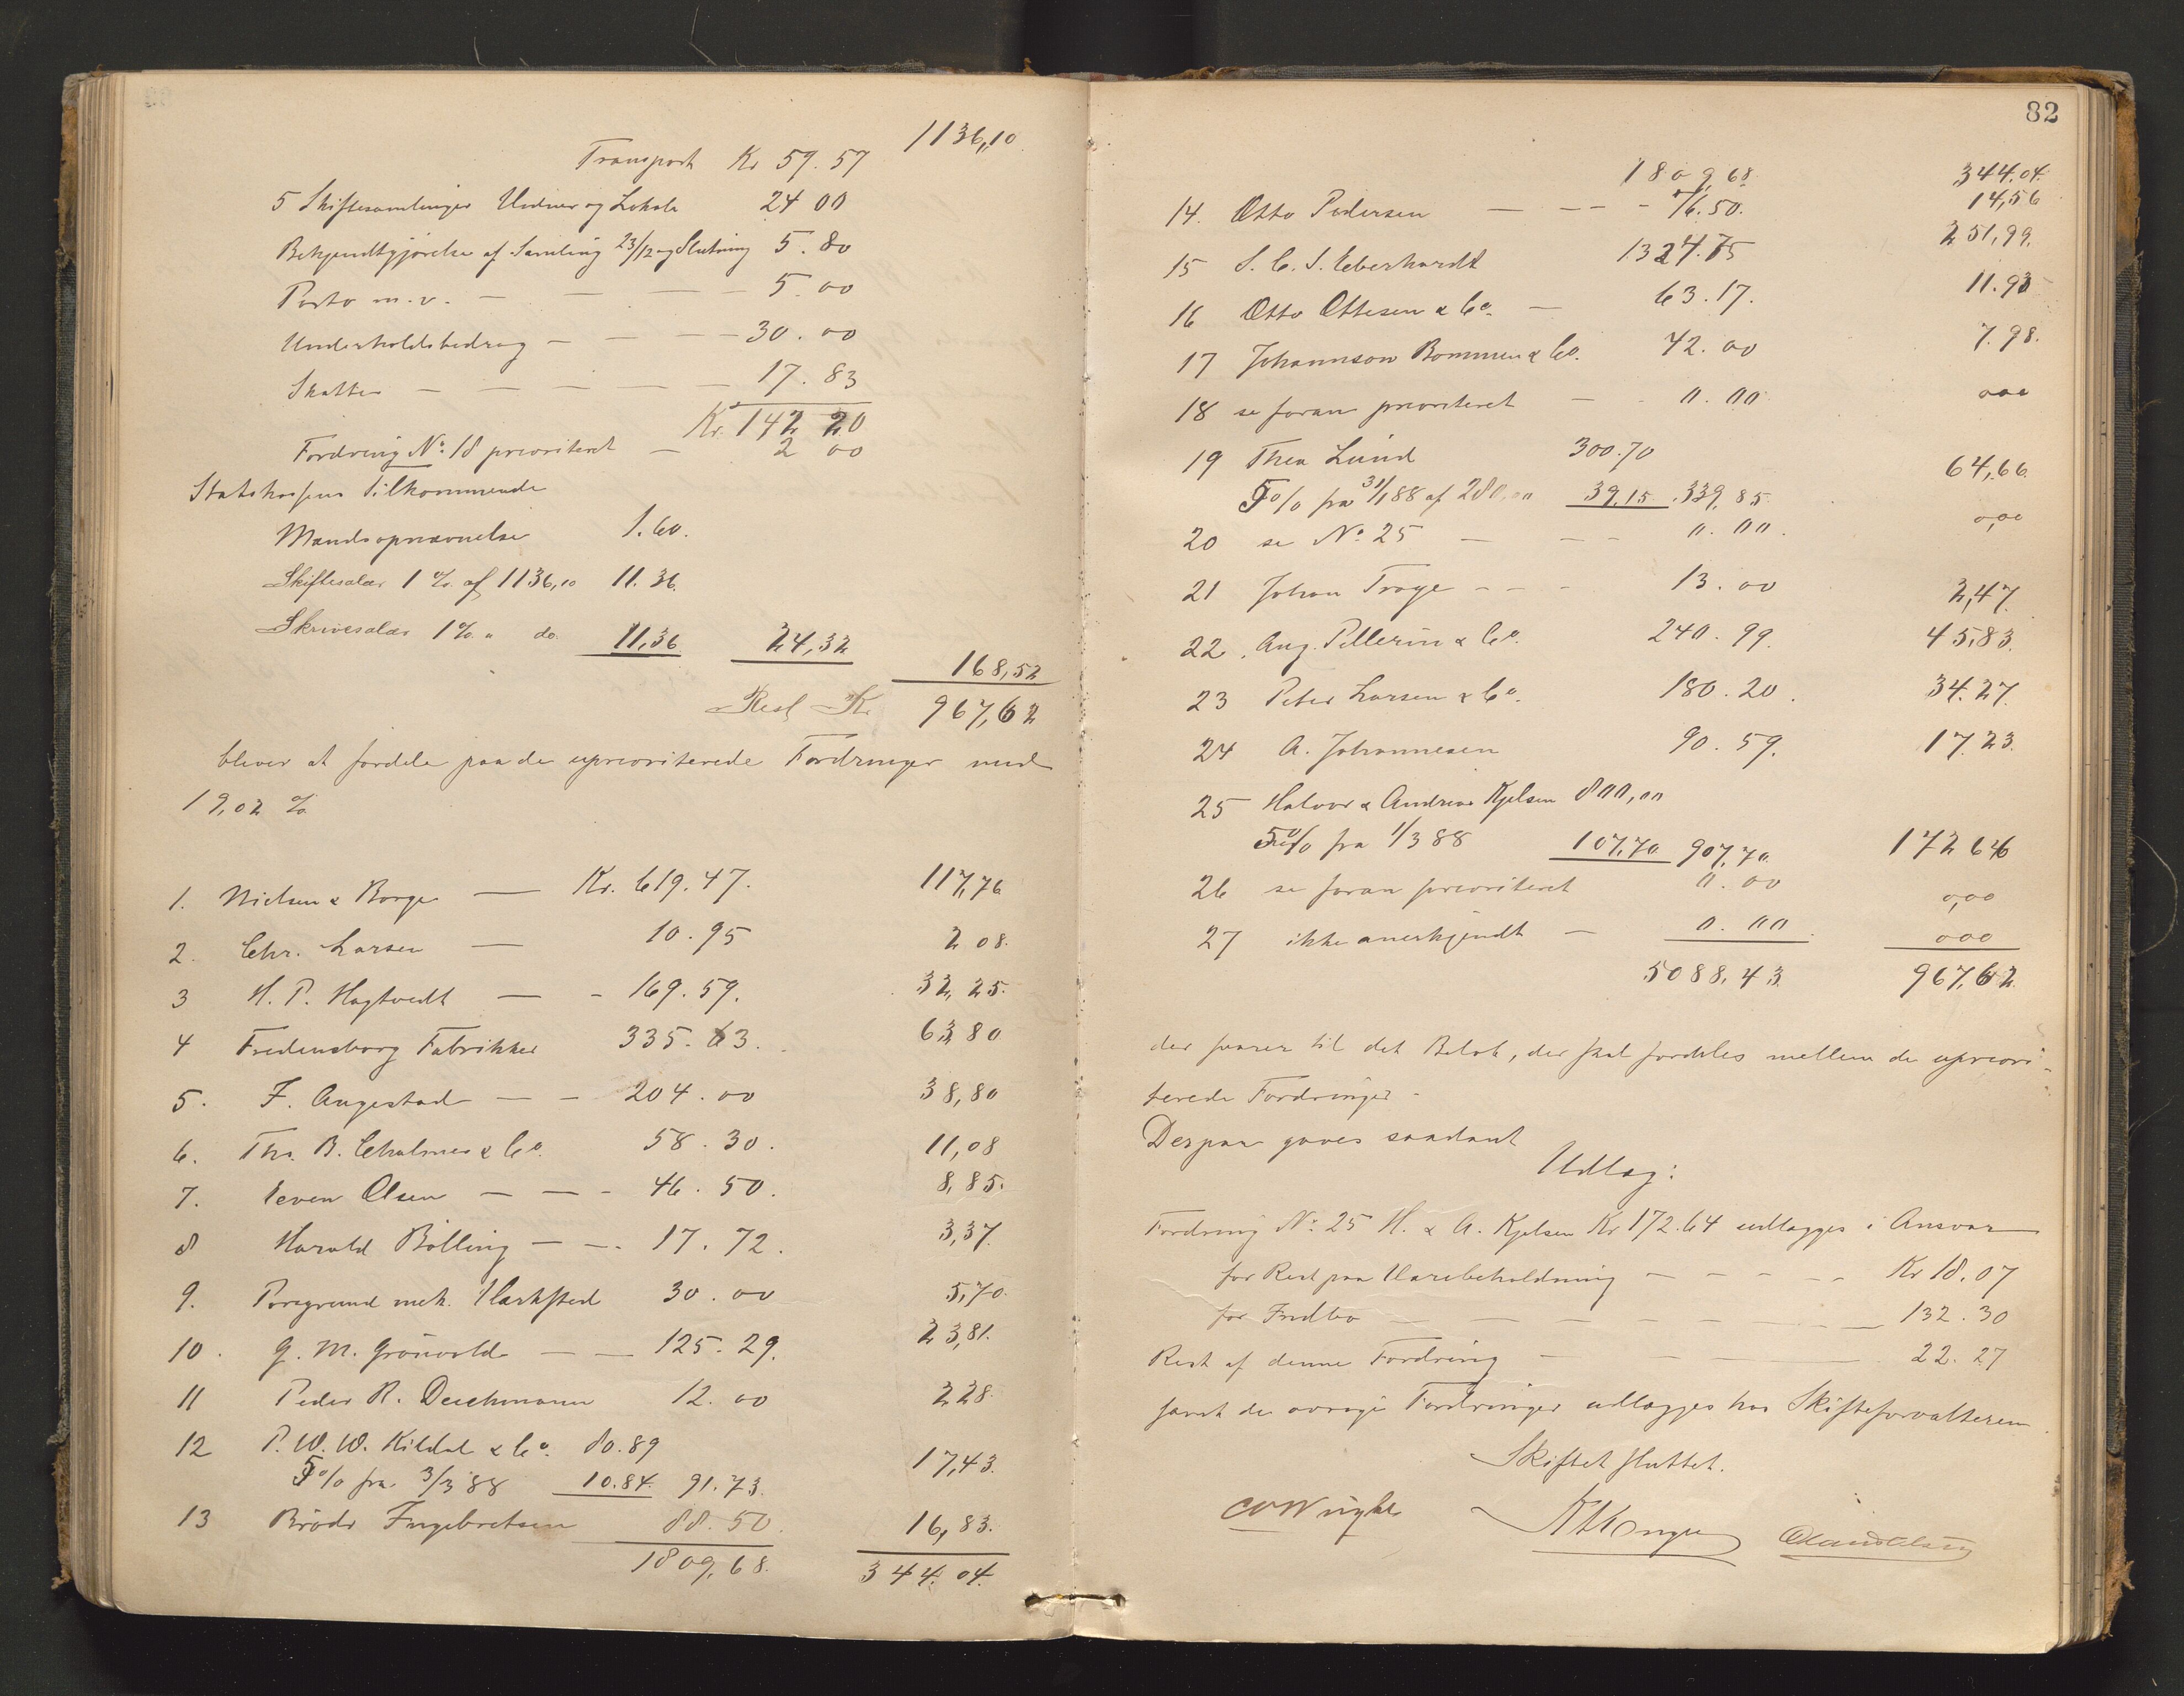 1136,10
Transport Kr 59.57
5 Skiftesamlinger Vidner og Lokale 24 00
Bekjendtgjørelse af Samling 23/12 og Slutning 5.80
Porto m.v. — — — — 5.00
Underholdsbidrag — — — — 30.00
Skatter — — — — — 17.83
Kr. 142 20
Fordring No. 18 prioriteret — 2 00
Statskassens Tilkommende
Mandsopnævnelse 1.60.
Skiftesalær 1 % af 1136,10 11.36.
Skrivesalær 1 % " do. 11,36 24,32
168,52
Rest Kr 967,62
bliver at fordele paa de uprioriterede Fordringer med
19,02 %
1. Nielsen & Borge — Kr. 619.47. 117,76
2. Chr. Larsen — 10.95 2 08.
3 H. P. Hagtvedt — - 169.59. 32,25.
4 Fredensborg Fabrikker 335.63. 63 80
5. F. Augestad — - 204.00 38,80
6. Ths. B. Chalmer & Co. 58.30. 11,08
7. Even Olsen — — - 46.50. 8,85.
8 Harald Bölling — -. 17.72. 3,37.
9. Porsgrund mek. Værksted 30.00 5,70.
10. G. M. Grönvold — — 125.29. 23,81.
11 Peder R. Deichmann 12.00 2 28.
12 P. W. W. Kildal & Co. 80.89
5 % fra 3/3 88 10.84. 91.73. 17,43.
13 Brödr Ingebretsen 88.50. 16,83.
1809,68. 344.04.
82
1809,68 344.04.
14. Otto Pedersen — — - - 76.50. 14,56
15 S. C. S. Eberhardt 1324.75 251,99.
16 Otto Ottesen & Co. — 63.17. 11.93
17 Johannson Bommen & Co. 42.00 7.98.
18 se foran prioriteret — - 0.00 000
19 Thea Lund 300.70
5 % fra 31/1 88 af 280,00 39,15 339,85 64,66.
20 se No. 25 — - - 0.00. 0,00
21 Johan Troye - - - 13.00 2,47.
22. Aug. Pellerin & Co. 240.99. 45,83.
23 Peter Larsen & Co. 180.20. 34.27.
24 A. Johannesen 90.59. 17.23.
25 Halvor & Andreas Kjelsen 800,00
5 % fra 1/3 88 107,70 907,70. 172 64
26 se foran prioriteret 0.00 0,00
27 ikke anerkjendt — 0.00. 000
5088,43. 967,62.
der svarer til det Beløb, der skal fordeles mellem de upriori-
terede Fordringer -
Derpaa gaves saadant
Udlæg:
Fordring No. 25 H. & A. Kjelsen Kr 172.64 udlægges i Ansvar
for Rest paa Varebeholdning — - - - - Kr 18.07
for Indbo — — — — — — — 132.30
Rest af denne Fordring — — — 22.27
samt de øvrige Fordringer udlægges hos Skifteforvalteren.
Skiftet sluttet.